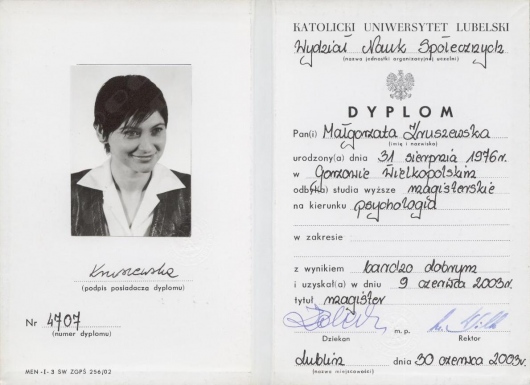 Kruszewska
(podpis posiadacza dyplomu)
Nr 4707
(numer dyplomu)
MEN-I-3 SW ZOPŚ 256/02
KATOLICKI UNIWERSYTET LUBELSKI
Wydział Nauk Społecznych
(nazwa jednostki organizacyjnej uczelni)
DYPLOM
Pan(i) Małgorzata Kruszewska
(imię i nazwisko)
urodzony(a) dnia 31 sierpnia 1976 r.
w Gorzowie Wielkopolskim
odbył(a) studia wyższe magisterskie
na kierunku psychologia
w zakresie
z wynikiem bardzo dobrym
i uzyskał(a) w dniu 9 czerwca 2003 r.
tytuł magister
m.p.
Dziekan Rektor
Lublin dnia 30 czerwca 2003 r.
(nazwa miejscowości)